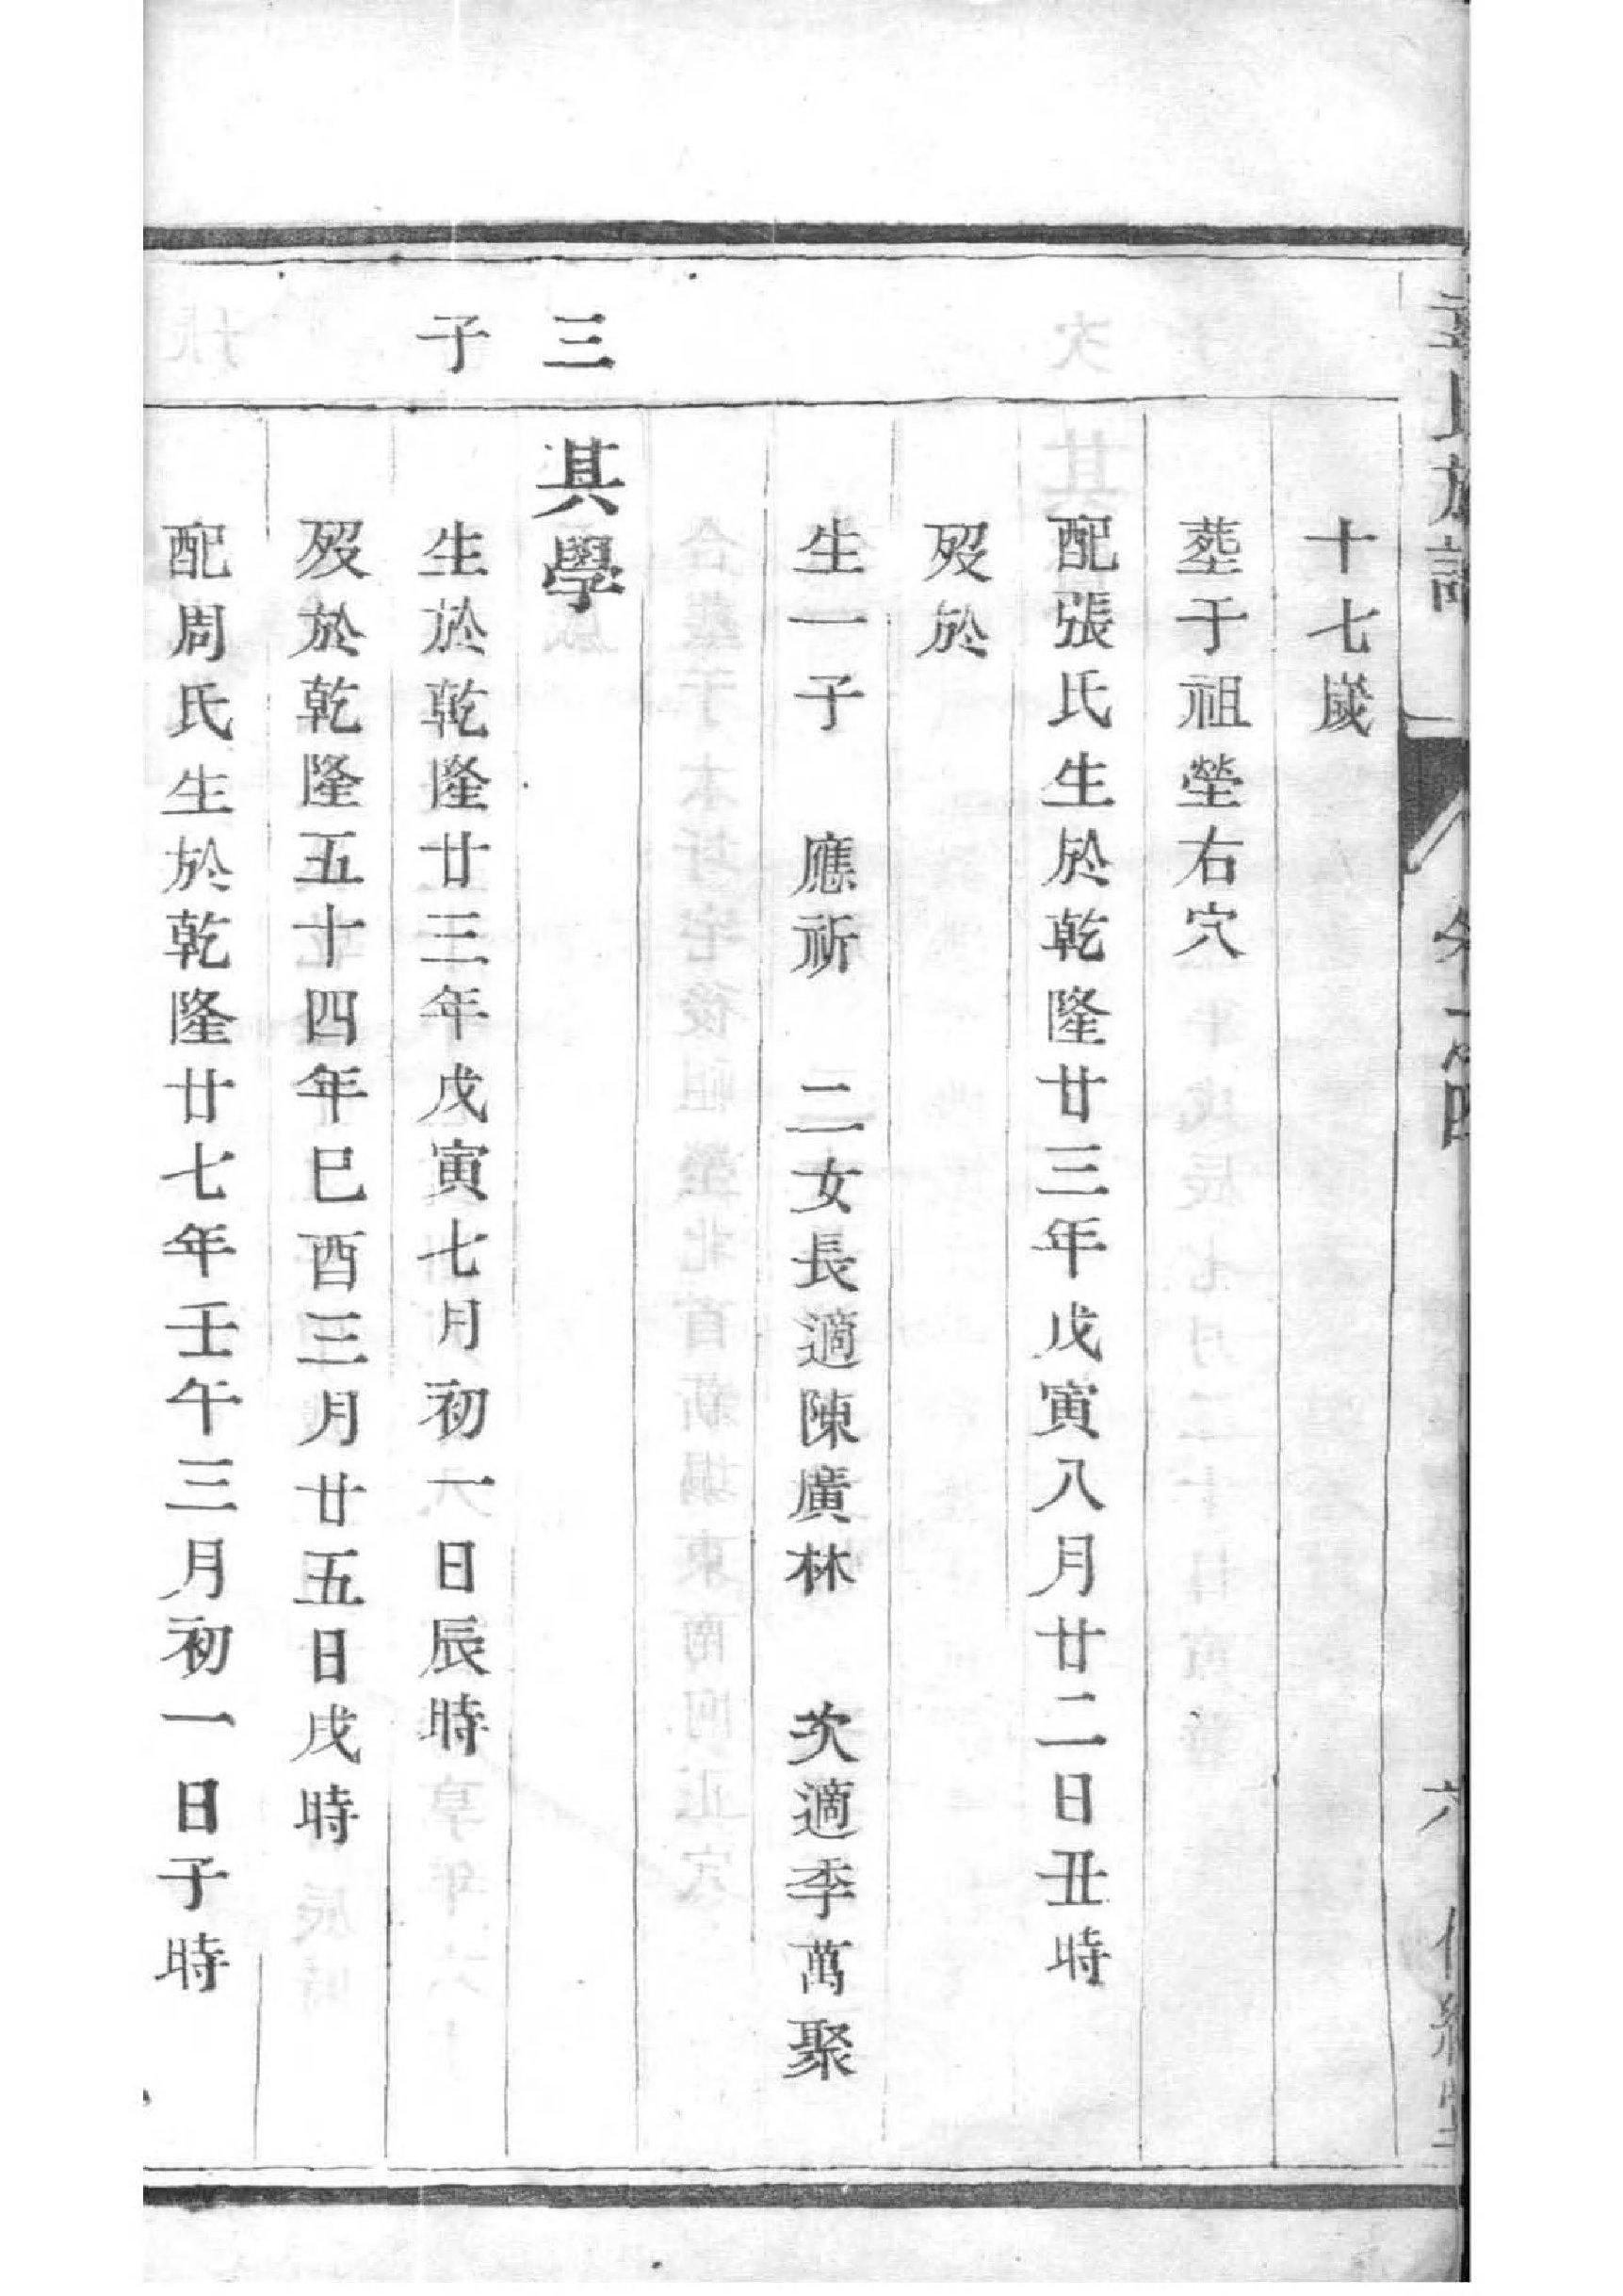 十七嵗
葬于祖塋右穴
配張氏生於乾隆廿三年戊寅八月廿二日丑時
歿於
生一子　應祈　二女長適陳廣林　次適季萬聚
三
其學
子
生於乾隆廿三年戊寅七月初一日辰時
歿於乾隆五十四年巳酉三月廿五日戌時
配周氏生於乾隆廿七年壬午三月初一日子時